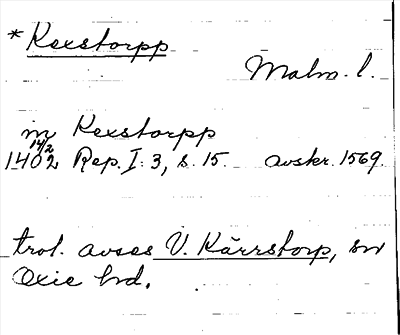 *Kexstorpp
Malm. l.
m Kexstorpp
14/2
1402 Rep. I: 3, s. 15. avskr. 1569.
trol. avses V. Kärrstorp, sn
Oxie hd.